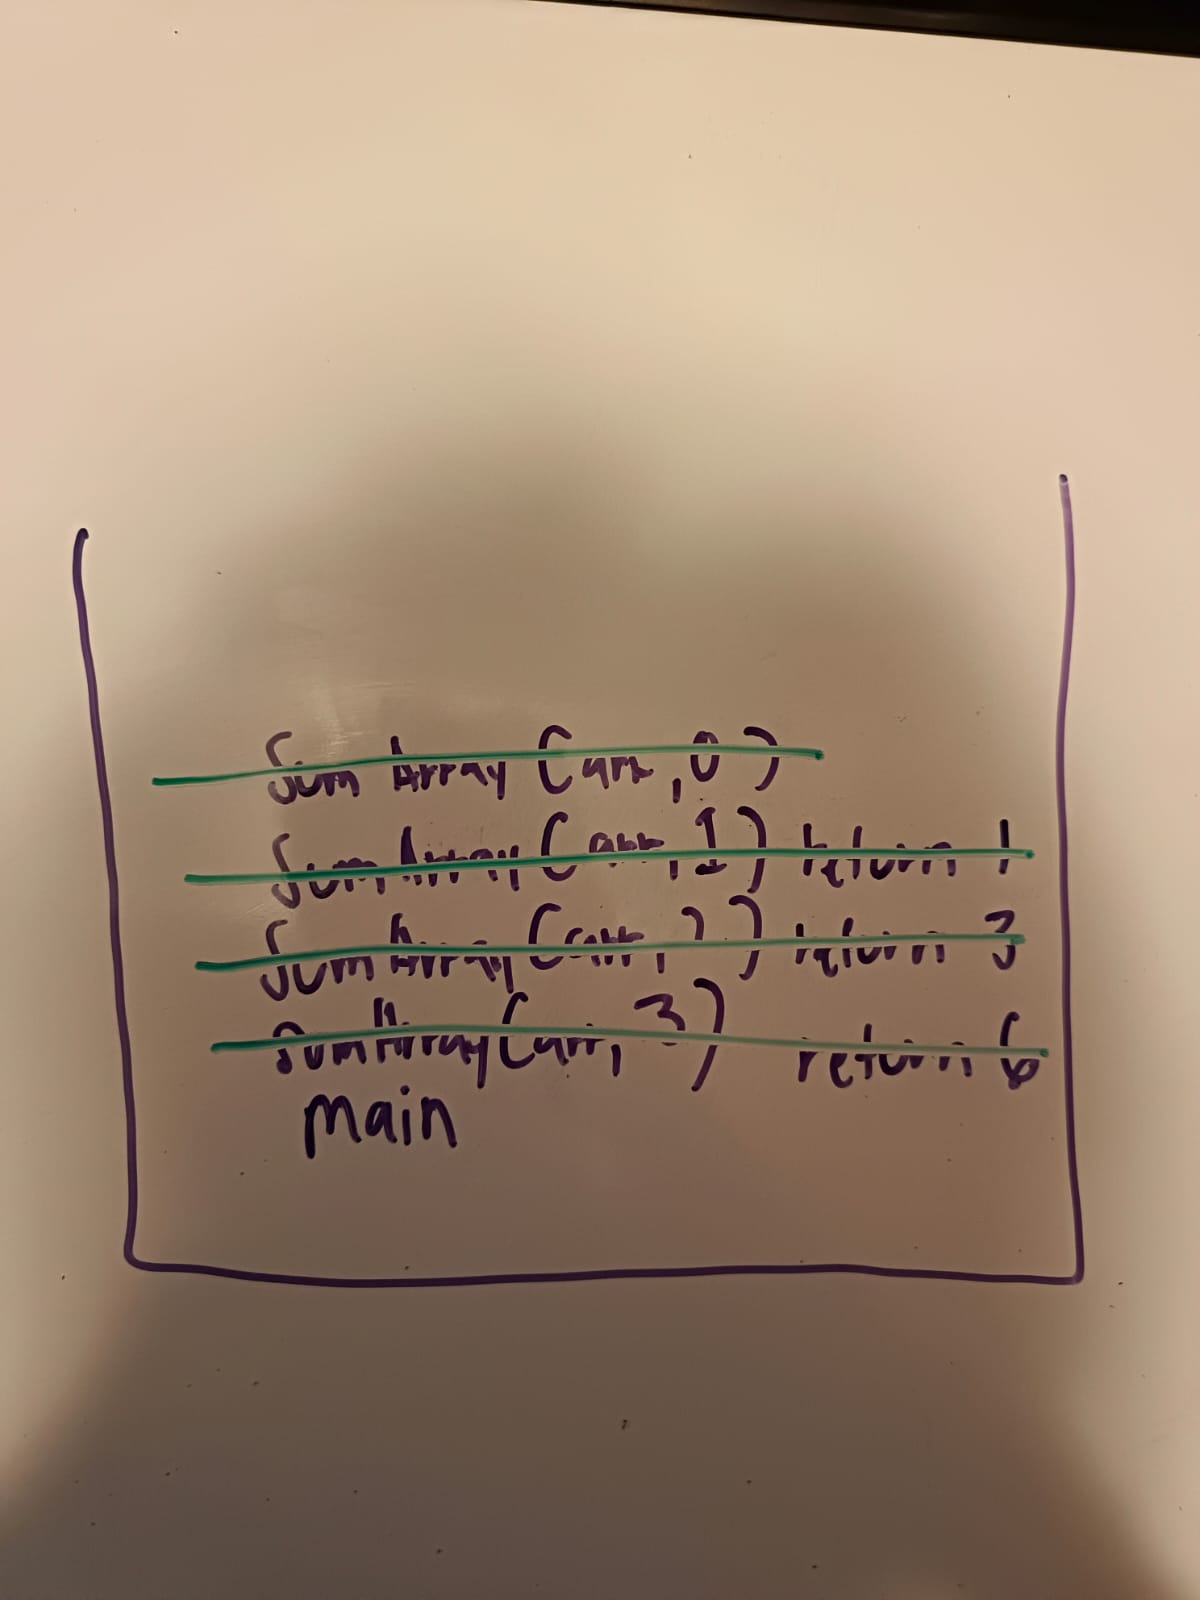 Sum Array (arr, 0)
Sum Array (arr, 1) return 1
Sum Array (arr, 2) return 3
Sum Array (arr, 3) return 6
main